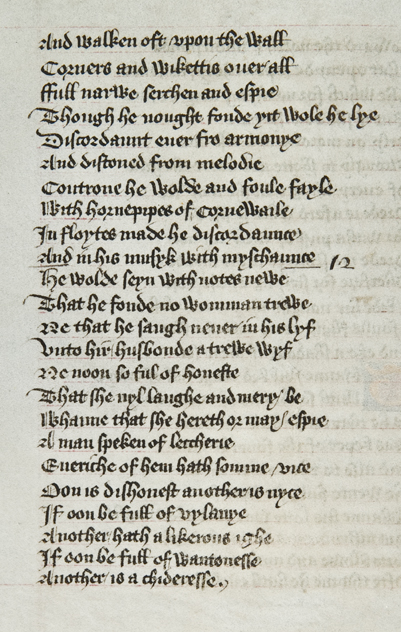 And walken oft vpon the wall
Corners and wikettis ouer all
Ffull narwe serchen and espie
Though he nought fonde yit wole he lye
Discordaunt euer fro armonye
And distoned from melodie
Controue he wolde and foule fayle
With hornepipes of Cornewaile
In floytes made he discordaunce
And in his musyk with myschaunce
He wolde seyn with notes newe
That he fonde no womman trewe
Ne that he saugh neuer in his lyf
Vnto hir husbonde a trewe wyf
Ne noon so ful of honeste
That she nyl laughe and mery be
Whanne that she hereth or may espie
A man speken of leccherie
Eueriche of hem hath somme vice
Oon is dishonest another is nyce
If oon be full of vylanye
Another hath a likerous ighe
If oon be full of wantonesse
Another is a chideresse